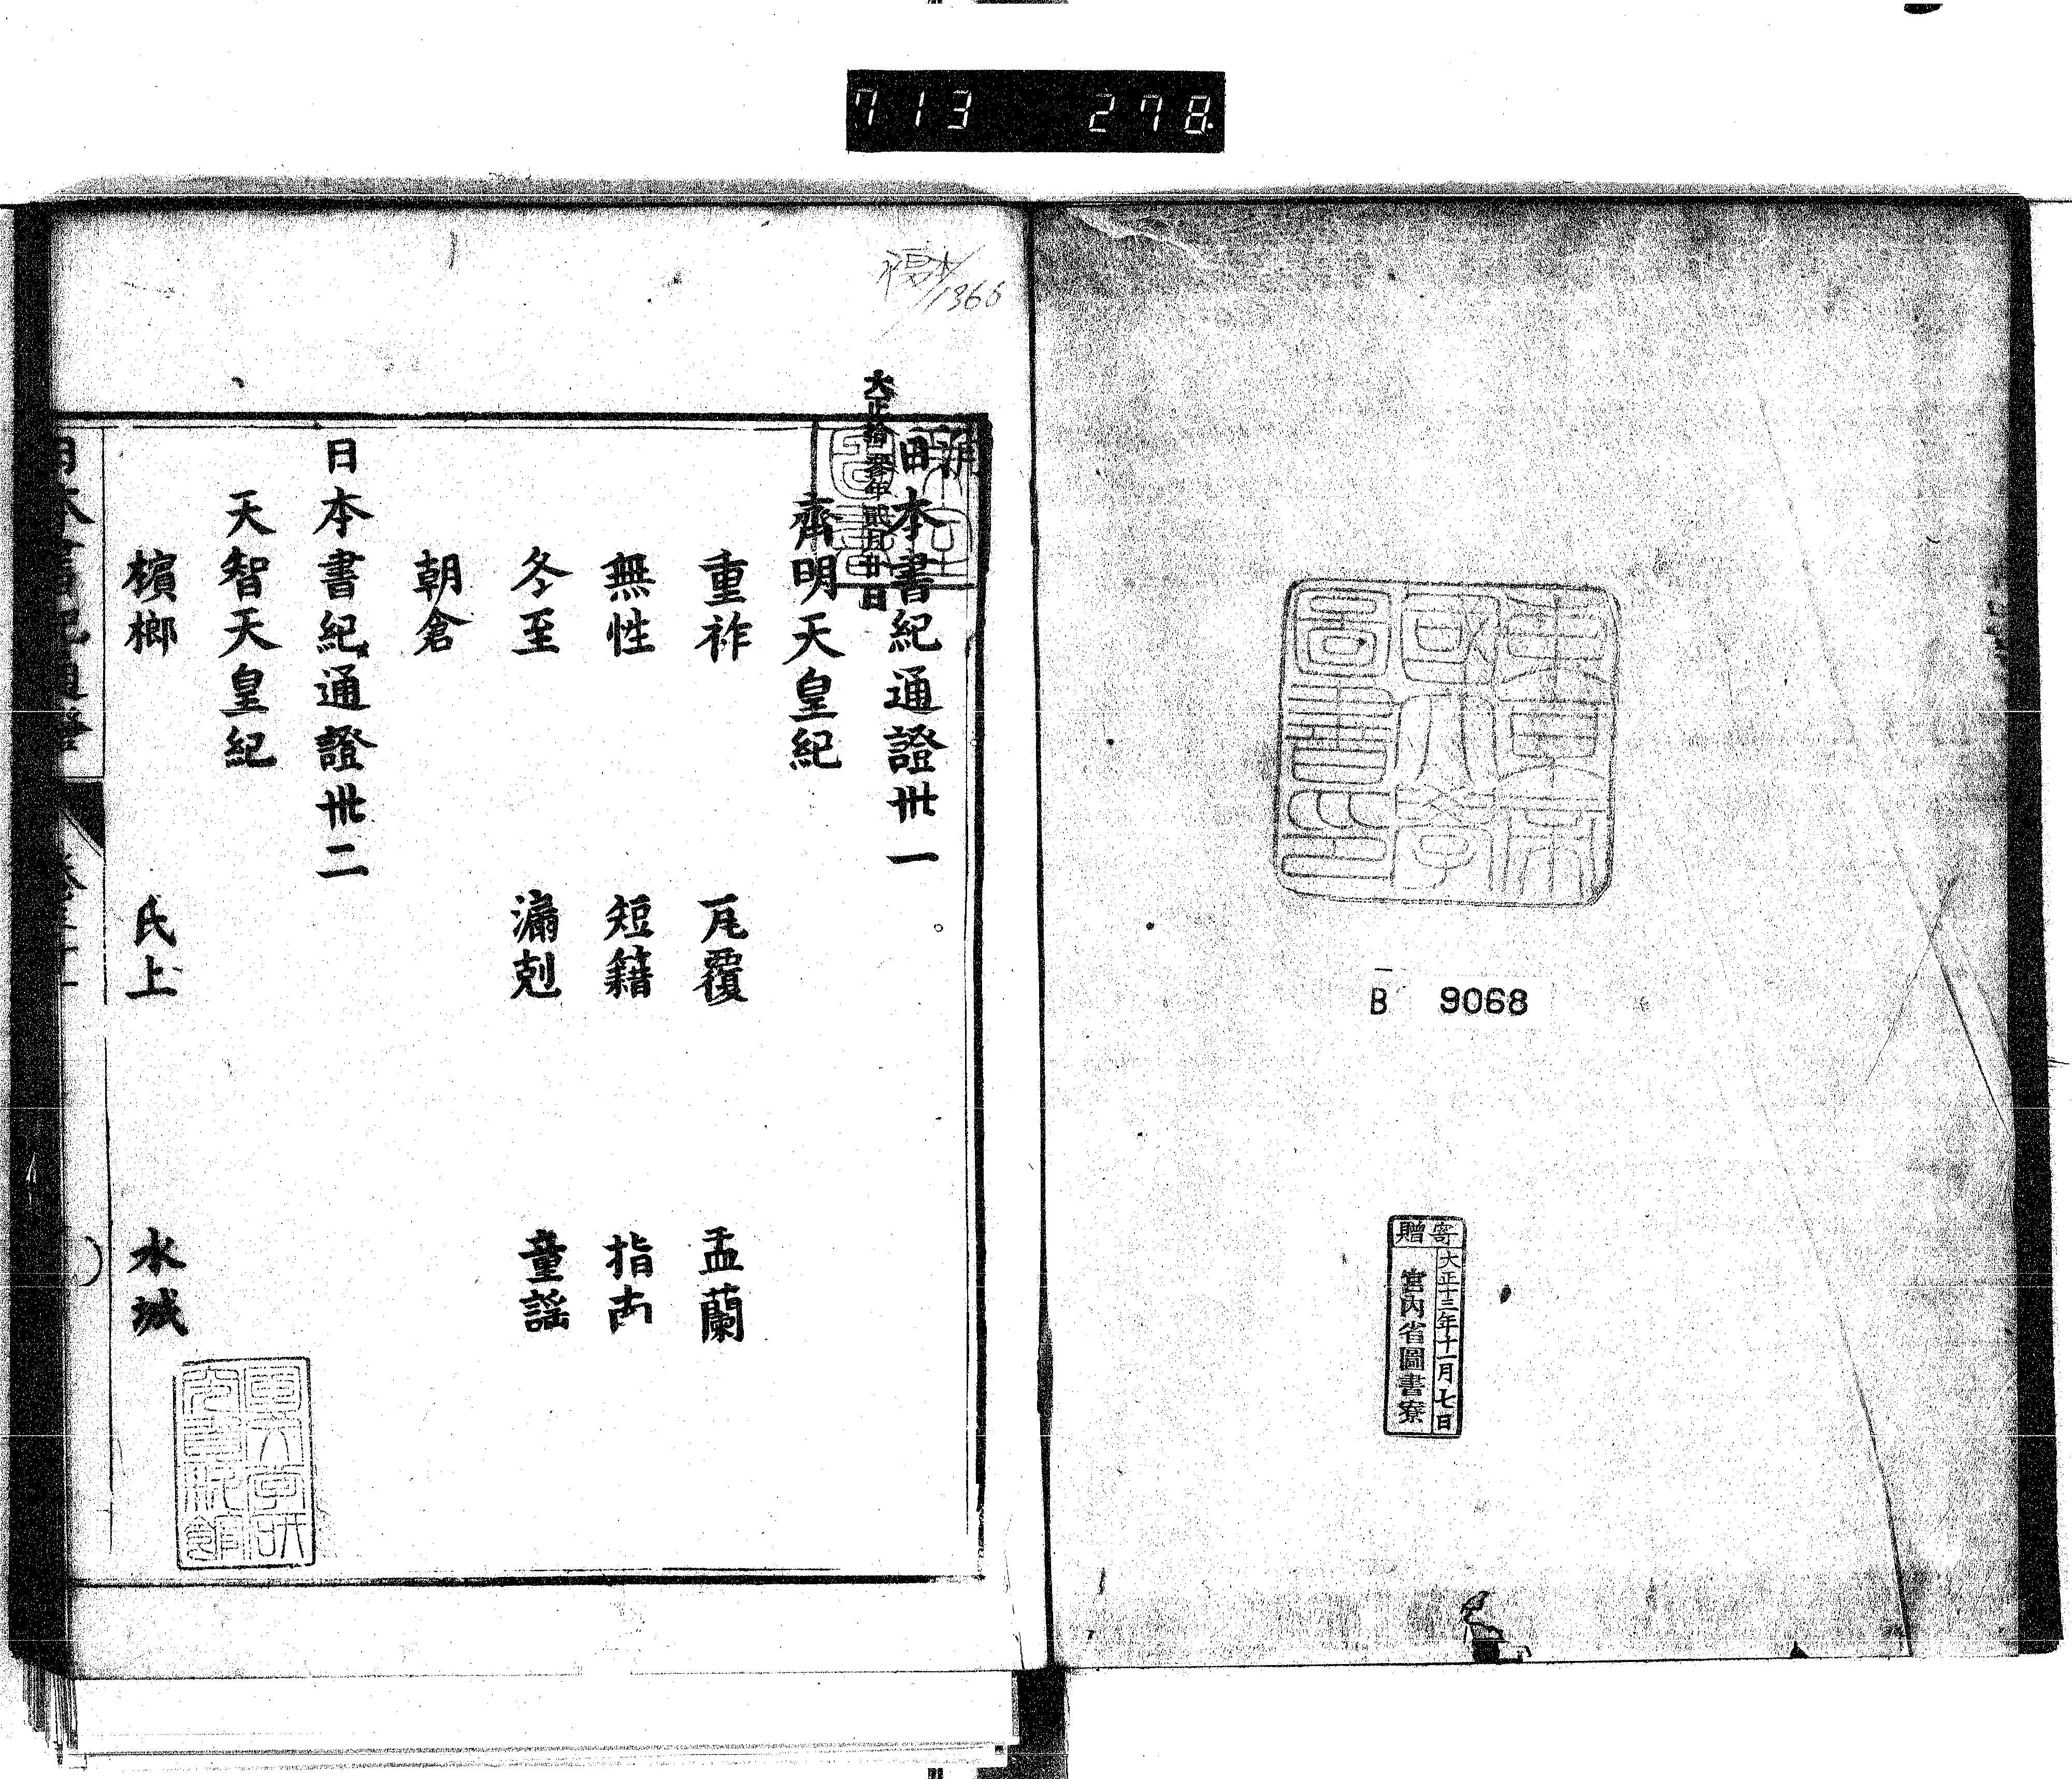 713 278
東京帝
國大學
圖書印
B 9068
寄贈
大正十三年十一月七日
宮内省圖書寮
複本
1366
大正拾參年貳月廿日
日本書紀通證卅一
齊明天皇紀
重祚 瓦覆 盂蘭
無性 短籍 指南
冬至 漏剋 童謠
朝倉
日本書紀通證卅二
天智天皇紀
檳榔 氏上 水城
日本書紀通證